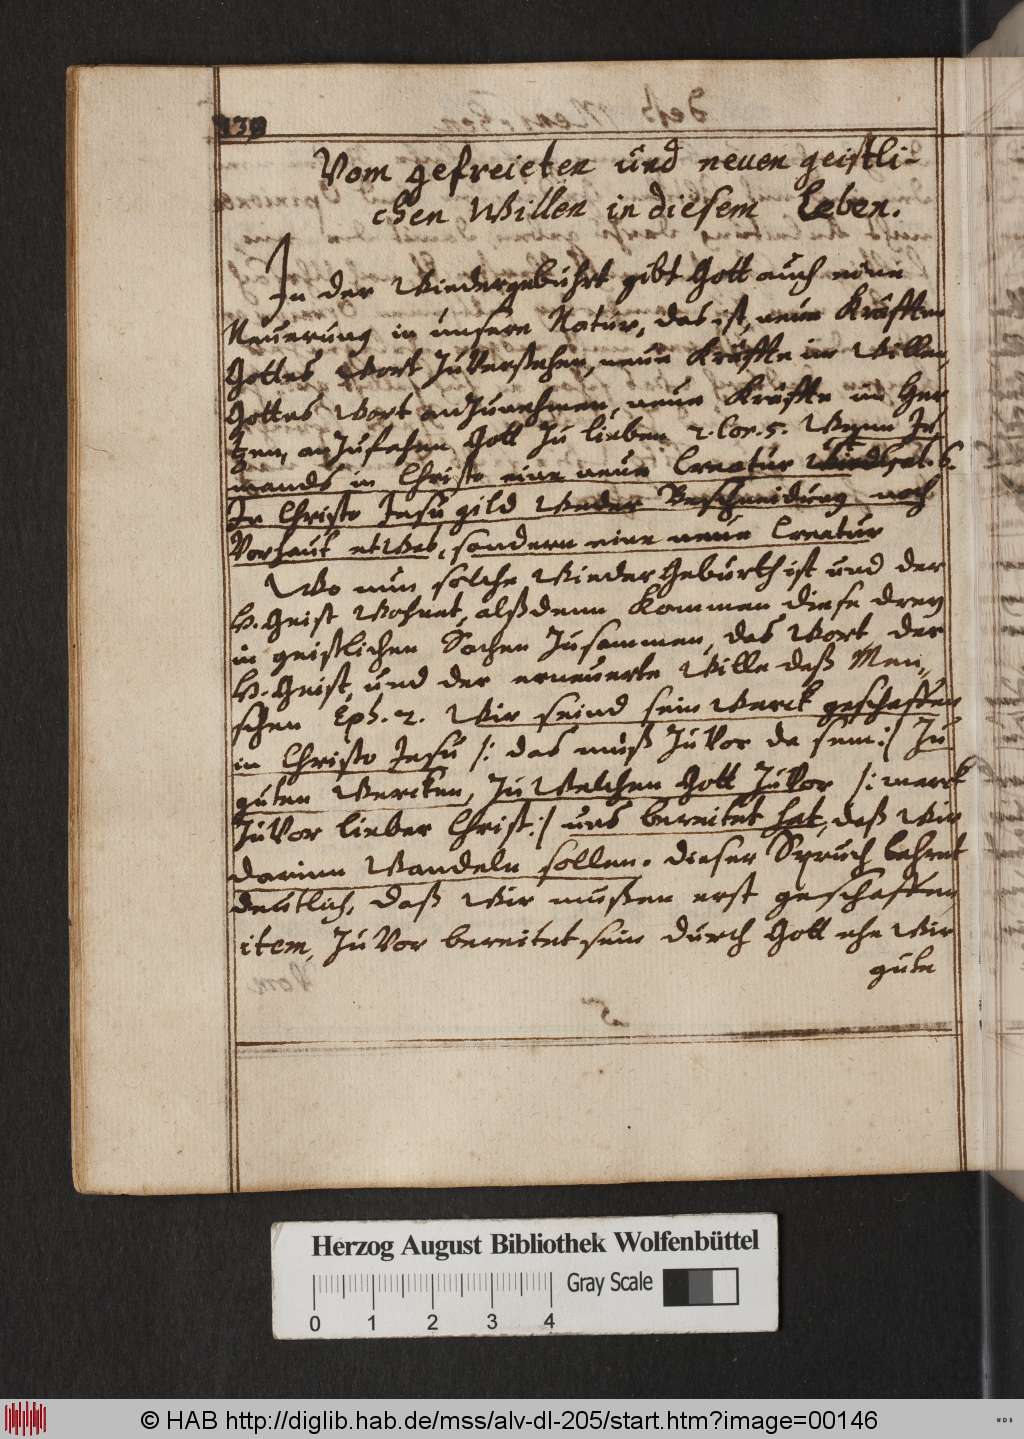 139
Vom gefreieten und neuen geistli-
chen Willen in diesem Leben.
In der Wiedergebuhrt gibt Gott auch eine
Neuerung in unsere Natur, das ist, neue Kräfften
Gottes Wort zuverstehen, neue Kräffte im Willen,
Gottes Wort anzunehmen, neue Kräffte im Her
tzen, anzufahen Gott zu lieben 2. Cor. 5. Wenn Je
mands in Christo eine neue Creatur wird Gal. 6.
In Christo Jesu gild Weder Beschneidung noch
Vorhaut etWas, sondern eine neue Creatur
Wo nun solche WiederGeburth ist und der
H. Geist Wohnet, alßdenn kommen diese drey
in geistlichen Sachen zusammen, das Wort, der
H. Geist, und der erneuerte Wille deß Men„
schen Eph. 2. Wir seind sein Werck geschaffen
in Christo Jesu /: das muß zuVor da sein :/ zu
guten Wercken, zu Welchen Gott zuVor /: merck
zuVor lieber Christ :/ uns bereitet hat, daß Wir
darinn Wandeln sollen. dieser Spruch lehret
deutlich, daß Wir mußen erst geschaffen
item, zuVor bereitet sein durch Gott ehe Wir
gute
Herzog August Bibliothek Wolfenbüttel
Gray Scale
0 1 2 3 4
© HAB http://diglib.hab.de/mss/alv-dl-205/start.htm?image=00146